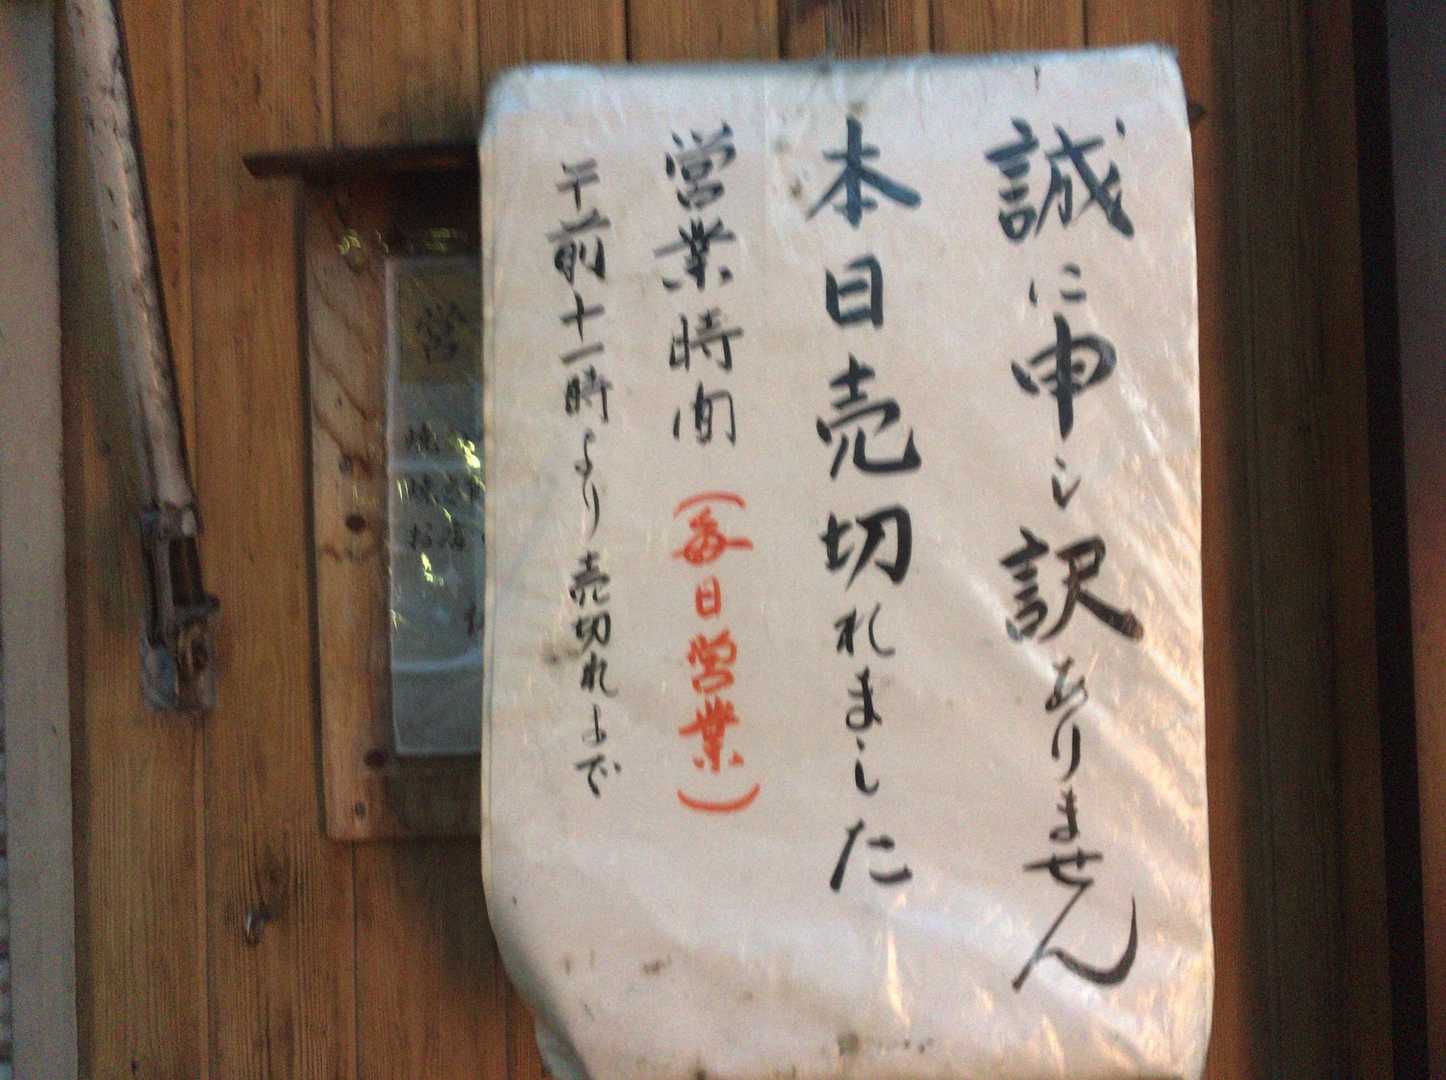 誠に申し訳ありません
本日売切れました
営業時間（毎日営業）
午前十一時より売切れまで
営